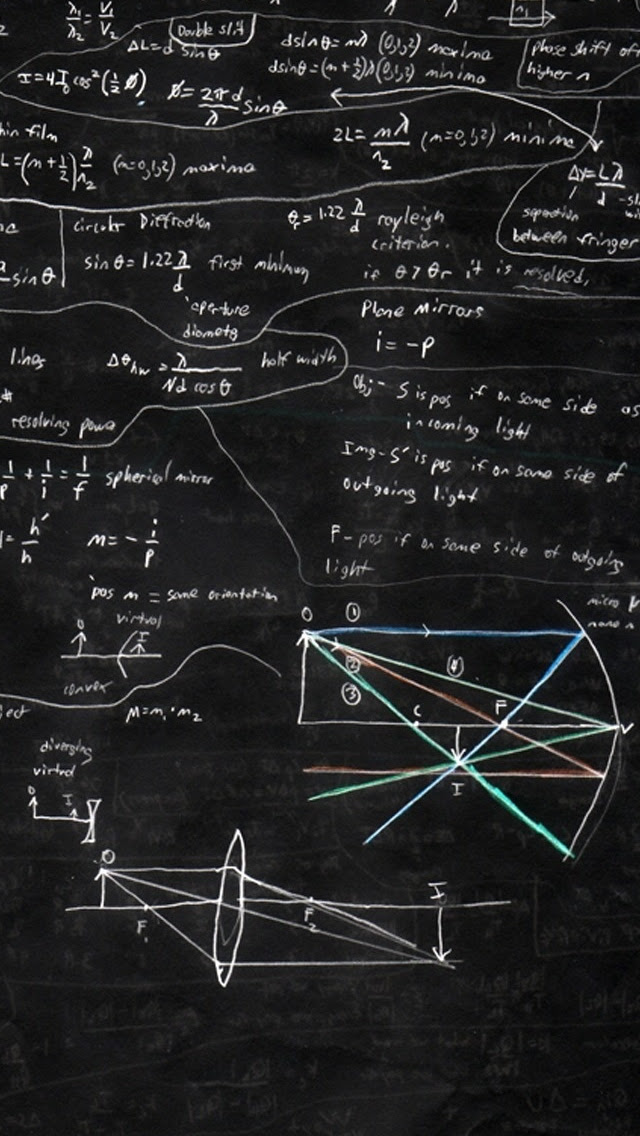 λ₁/λ₂ = V₁/V₂
Double slit
ΔL = d sinθ
dsinθ = mλ (0,1,2) maxima
dsinθ = (m + ½)λ (0,1,2) minima
phase shift of
higher n
I = 4I₀ cos²(½ φ)
φ = 2πd/λ sinθ
thin film
2L = mλ/n₂ (m=0,1,2) minima
L = (m + ½) λ/n₂ (m=0,1,2) maxima
Δy = Lλ/d
separation
between fringes
Circular Diffraction
sinθ = 1.22 λ/d first minimum
aperture
diameter
θr = 1.22 λ/d rayleigh
criterion.
if θ > θr it is resolved,
sinθ
lines
Δθhw = λ/(Nd cosθ) half width
resolving power
Plane Mirrors
i = -p
Obj - S is pos if on same side as
incoming light
Img - S' is pos if on same side of
outgoing light
F - pos if on same side of outgoing
light
1/p + 1/i = 1/f spherical mirror
= h'/h
m = - i/p
pos m = same orientation
virtual
O
I
convex
M = m₁ · m₂
diverging
virtual
O
I
micro
nano
O
①
②
③
④
C
F
V
I
O
F₁
F₂
I